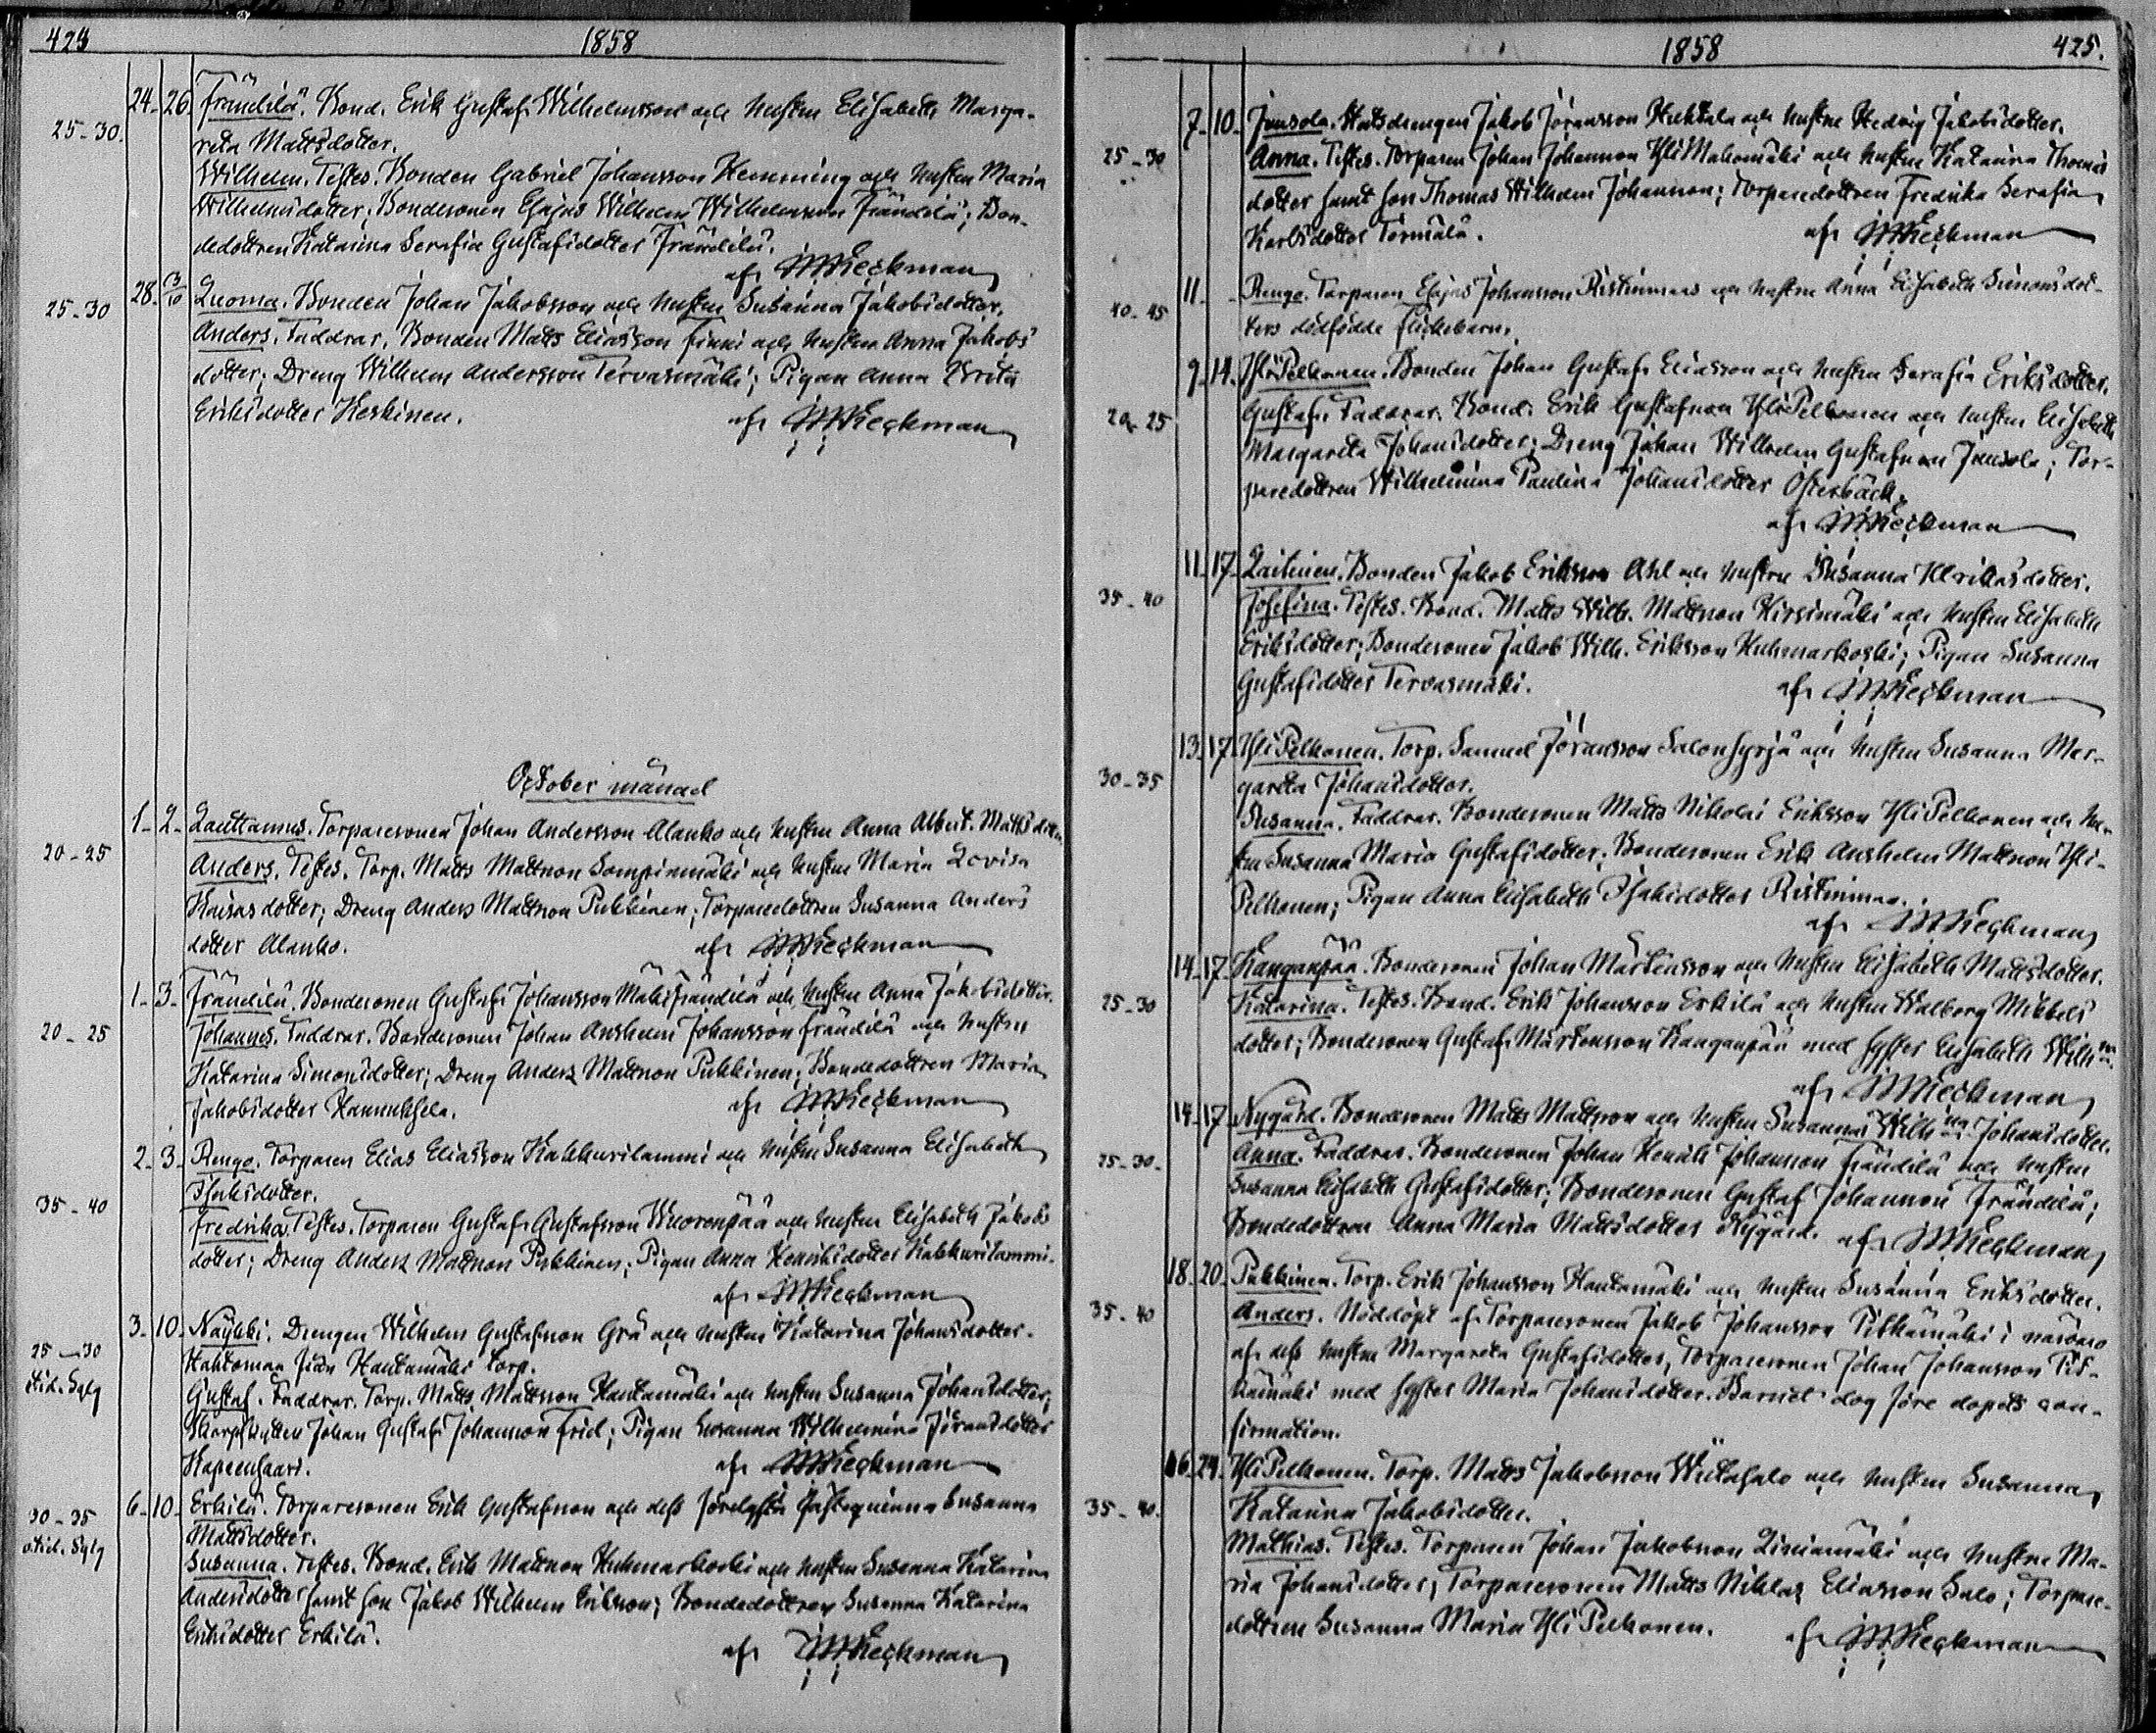 424 1858
24. 26. Frändilä. Bond. Erik Gustaf Wilhelmsson och hustrun Elisabeth Marga-
25-30. reta Mattsdotter.
Wilhelm. Testes. Bonden Gabriel Johansson Hemming och hustrun Maria
Wilhelmsdotter; Bondesonen Esajas Wilhelm Wilhelmsson Frändilä; Bon-
dedottren Katarina Serafia Gustafsdotter Frändilä.
af Heckman
28. 3/10 Luoma. Bonden Johan Jakobsson och hustrun Susanna Jakobsdotter.
25-30 Anders. Faddrar. Bonden Matts Eliasson Finni och hustrun Anna Jakobs
dotter; Dreng Wilhelm Andersson Tervasmäki; Pigan Anna Brita
Eriksdotter Keskinen. af Heckman
October månad
1. 2. Lauttamus. Torparesonen Johan Andersson Alanko och hustrun Anna Albert. Mattsdotter
20-25 Anders. Testes. Torp. Matts Mattsson Sompinmäki och hustrun Maria Lovisa
Kaisasdotter; Dreng Anders Mattsson Pukkinen; Torparedottren Susanna Anders
dotter Alanko. af Heckman
1. 3. Frändilä. Bondesonen Gustaf Johansson Mäkifrändilä och hustrun Anna Jakobsdotter.
20-25 Johannes. Faddrar. Bondesonen Johan Anshelm Johansson Frändilä och hustrun
Katarina Simonsdotter; Dreng Anders Mattsson Pukkinen; Bondedottren Maria
Jakobsdotter Hannuksela. af Heckman
2. 3. Rengo. Torparen Elias Eliasson Kakkurilammi och hustrun Susanna Elisabeth
Isaksdotter.
35-40 Fredrika. Testes. Torparen Gustaf Gustafsson Wuorenpää och hustrun Elisabeth Jakobs
dotter; Dreng Anders Mattsson Pukkinen; Pigan Anna Henriksdotter Kakkurilammi.
af Heckman
3. 10. Näykki. Drengen Wilhelm Gustafsson Grå och hustrun Katarina Johansdotter.
25-30 Hahtomaa från Hautamäki torp.
Gustaf. Faddrar. Torp. Matts Mattsson Hautamäki och hustrun Susanna Johansdotter;
Skarpskytten Johan Gustaf Johansson Frid; Pigan Susanna Wilhelmina Göransdotter
Kapeenhaari. af Heckman
6. 10. Erkilä. Torparesonen Erik Gustafsson och dess förelysta fästeqvinna Susanna
30-35 Mattsdotter.
Susanna. Testes. Bond. Erik Mattsson Kuhmarkoski och hustrun Susanna Katarina
Andersdotter samt son Jakob Wilhelm Eriksson; Bondedottren Susanna Katarina
Eriksdotter Erkilä. af Heckman
1858 425.
7. 10. Junsola. Statsdrengen Jakob Göransson Huhtala och hustrun Hedvig Jakobsdotter.
25-30 Anna. Testes. Torparen Johan Johansson Yli Mahomäki och hustrun Katarina Thomas
dotter samt son Thomas Wilhelm Johansson; Torparedottren Fredrika Serafia
Karlsdotter Törmälä. af Heckman
11. - Rengo. Torparen Esajas Johansson Ristinmaas och hustrun Anna Elisabeth Simonsdot-
40-45 ters dödfödde flickebarn.
9. 14. Yli Pelkonen. Bonden Johan Gustaf Eliasson och hustrun Serafia Eriksdotter.
20-25 Gustaf. Faddrar. Bond. Erik Gustafsson Yli Pelkonen och hustrun Elisabeth
Margareta Johansdotter; Dreng Johan Wilhelm Gustafsson Junsola; Tor-
paredottren Wilhelmina Paulina Johansdotter Österbäck.
af Heckman
11. 17. Laitinen. Bonden Jakob Eriksson Ahl och hustrun Susanna Ulrikasdotter.
35-40 Josefina. Testes. Bond. Matts Wilh. Mattsson Hirsimäki och hustrun Elisabeth
Eriksdotter; Bondesonen Jakob Wilh. Eriksson Kuhmarkoski; Pigan Susanna
Gustafsdotter Tervasmäki. af Heckman
13. 17. Yli Pelkonen. Torp. Samuel Göransson Salonsyrjä och hustrun Susanna Mar-
30-35 gareta Johansdotter.
Susanna. Faddrar. Bondesonen Matts Nikolai Eriksson Yli Pelkonen och hu-
strun Susanna Maria Gustafsdotter; Bondesonen Erik Anshelm Mattsson Yli-
Pelkonen; Pigan Anna Elisabeth Isaksdotter Ristinmaa.
af Heckman
14. 17. Kangaspää. Bondesonen Johan Mårtensson och hustrun Elisabeth Mattsdotter.
25-30 Katarina. Testes. Bond. Erik Johansson Erkilä och hustrun Walborg Mikkels
dotter; Bondesonen Gustaf Mårtensson Kangaspää med syster Elisabeth Wilh:na.
af Heckman
14. 17. Nygård. Bondesonen Matts Mattsson och hustrun Susanna Wilh:na Johansdotter.
25-30. Anna. Faddrar. Bondesonen Johan Henrik Johansson Frändilä och hustrun
Susanna Elisabeth Gustafsdotter; Bondesonen Gustaf Johansson Frändilä;
Bondedottren Anna Maria Mattsdotter Nygård. af Heckman
18. 20. Pukkinen. Torp. Erik Johansson Hautamäki och hustrun Susanna Eriksdotter.
35-40 Anders. Nöddöpt af Torparesonen Jakob Johansson Pitkämäki i närvaro
af dess hustru Margareta Gustafsdotter, Torparesonen Johan Johansson Pit-
kämäki med syster Maria Johansdotter. Barnet dog före dopets con-
firmation.
16. 24. Yli Pelkonen. Torp. Matts Jakobsson Wiitasalo och hustrun Susanna
35-40. Katarina Jakobsdotter.
Mathias. Testes. Torparen Johan Jakobsson Liniamäki och hustrun Ma-
ria Johansdotter; Torparesonen Matts Niklas Eliasson Salo; Torpare-
dottren Susanna Maria Yli Pelkonen. af Heckman